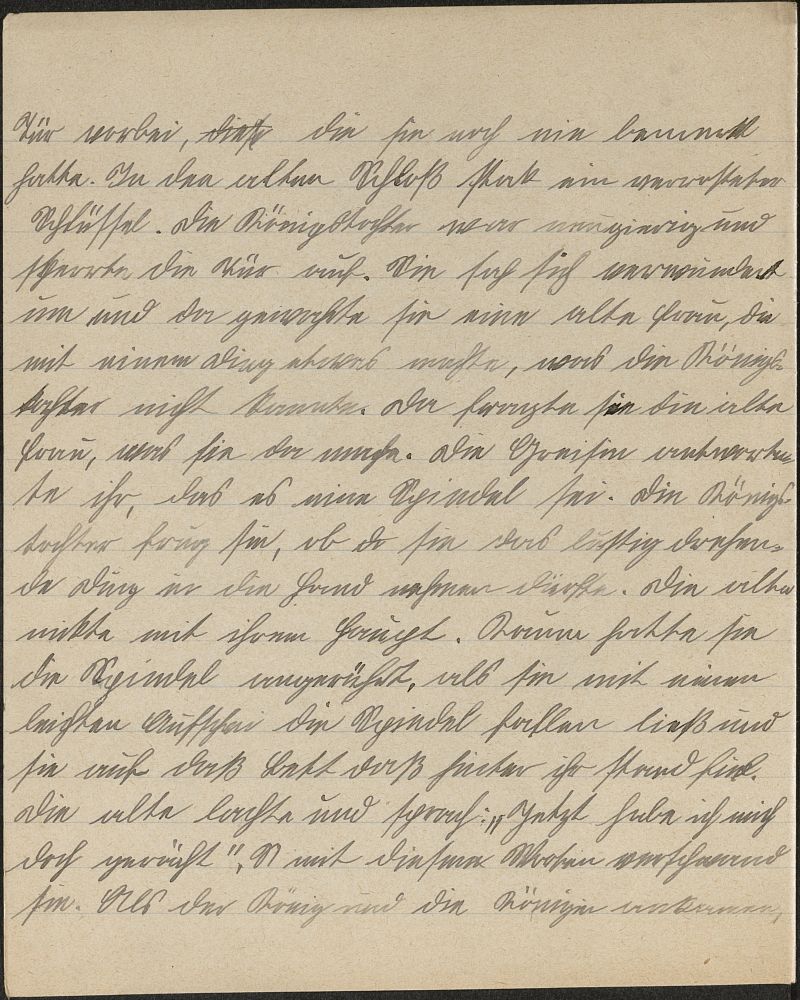 Tür vorbei, diese die sie noch nie bemerkt
hatte. In den alten Schloß stak ein verrosteter
Schlüssel. Die Königstochter war neugierig und
sperrte die Tür auf. Sie sah sich verwundert
um und da gewahrte sie eine alte Frau, die
mit einem Ding etwas machte, was die Königs-
tochter nicht kannte. Da fragte sie die alte
Frau, was sie da mache. Die Greisin antworte-
te ihr, das es eine Spindel sei. Die Königs-
tochter frug sie, ob do sie das lustig drehen-
de Ding in die Hand nehmen dürfte. Die alte
nickte mit ihrem Haupt. Kaum hatte sie
die Spindel angerührt, als sie mit einen
leichten Aufschrei die Spindel fallen ließ und
sie auf daß Bett daß hinter ihr stand fiel.
Die alte lachte und sprach: „Jetzt habe ich mich
doch gerächt", S mit diesem Worten verschwand
sie. Als der König und die Königin ankamen,